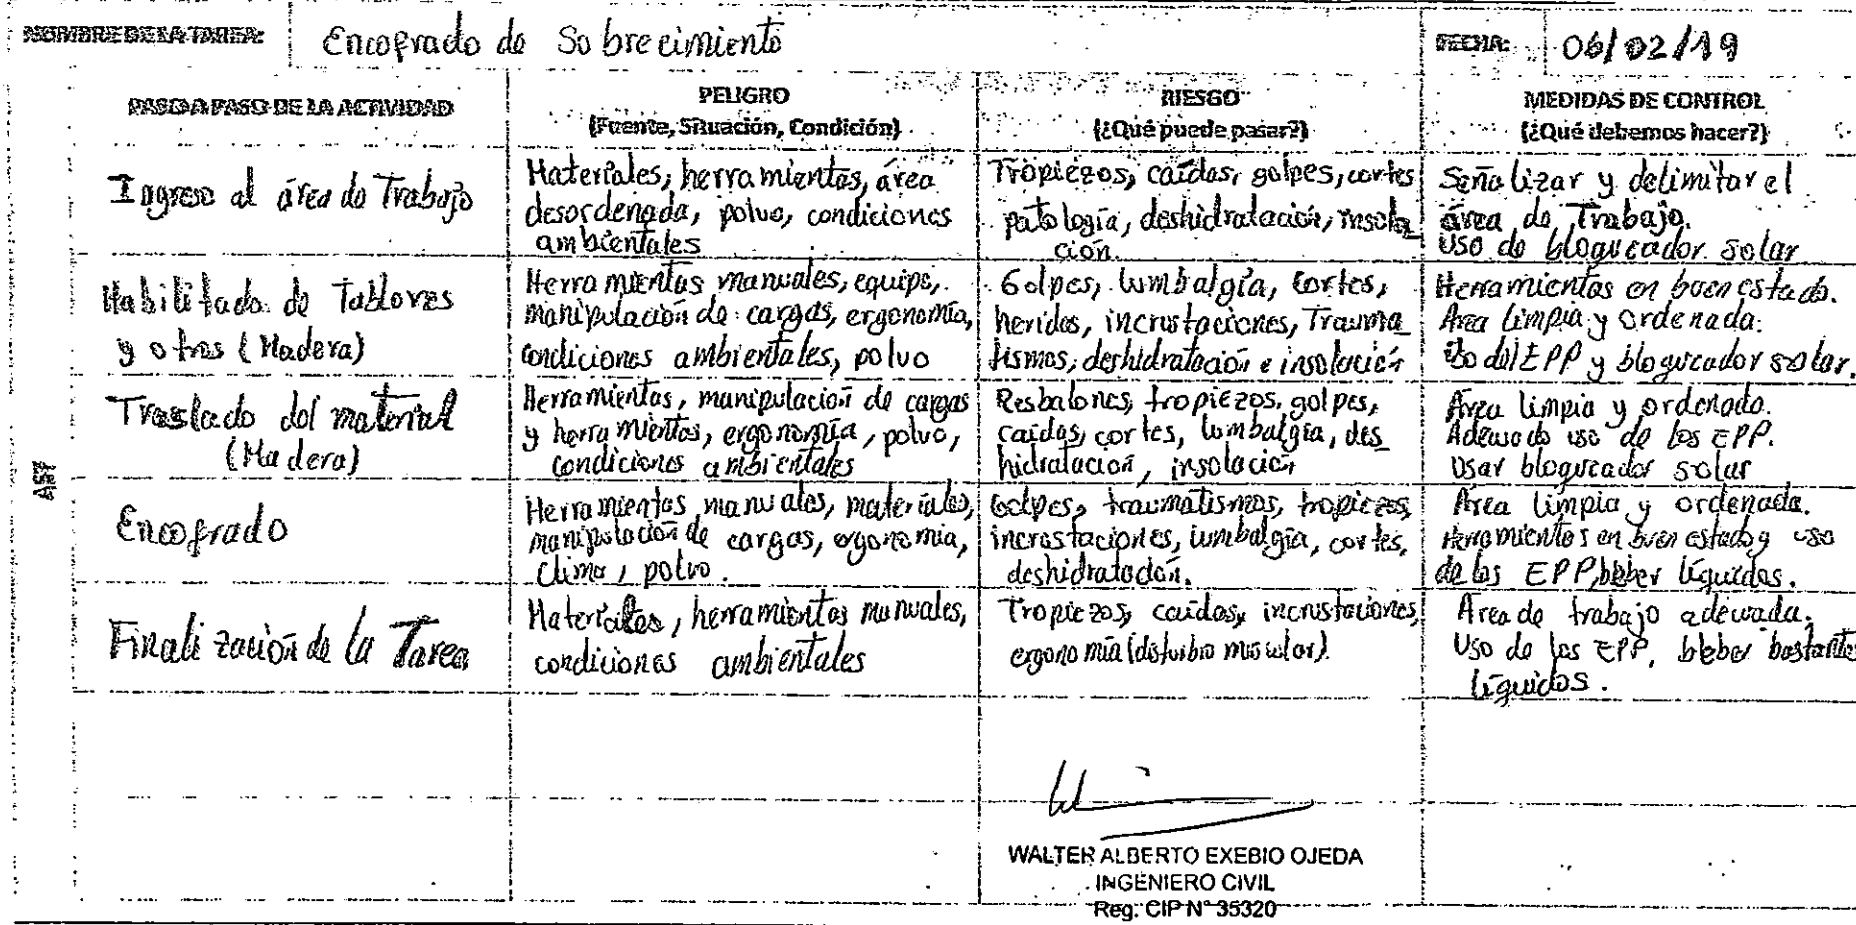 NOMBRE DE LA TAREA: Encofrado de Sobrecimiento FECHA: 06/02/19
PASO A PASO DE LA ACTIVIDAD
PELIGRO
(Fuente, Situación, Condición)
RIESGO
(¿Qué puede pasar?)
MEDIDAS DE CONTROL
(¿Qué debemos hacer?)
AST
Ingreso al área de Trabajo
Materiales, herramientas, área
desordenada, polvo, condiciones
ambientales
Tropiezos, caídas, golpes, cortes
patología, deshidratación, insola
ción.
Señalizar y delimitar el
área de Trabajo.
Uso de bloqueador solar
Habilitado de Tablones
y otros (Madera)
Herramientas manuales, equipo,
manipulación de cargas, ergonomía,
condiciones ambientales, polvo
Golpes, lumbalgía, cortes,
heridas, incrustaciones, Trauma
tismos, deshidratación e insolación
Herramientas en buen estado.
Área limpia y ordenada.
Uso del EPP y bloqueador solar.
Traslado del material
(Madera)
Herramientas, manipulación de cargas
y herramientas, ergonomía, polvo,
condiciones ambientales
Resbalones, tropiezos, golpes,
caídas, cortes, lumbalgia, des
hidratación, insolación
Área limpia y ordenada.
Adecuado uso de los EPP.
Usar bloqueador solar
Encofrado
Herramientas manuales, materiales,
manipulación de cargas, ergonomía,
clima, polvo.
Golpes, traumatismos, tropiezos,
incrustaciones, lumbalgia, cortes,
deshidratación.
Área limpia y ordenada.
Herramientas en buen estado y uso
de los EPP, beber líquidos.
Finalización de la Tarea
Materiales, herramientas manuales,
condiciones ambientales
Tropiezos, caídas, incrustaciones,
ergonomía (disturbio muscular).
Área de trabajo adecuada.
Uso de los EPP, beber bastantes
líquidos.
WALTER ALBERTO EXEBIO OJEDA
INGENIERO CIVIL
Reg. CIP N° 35320